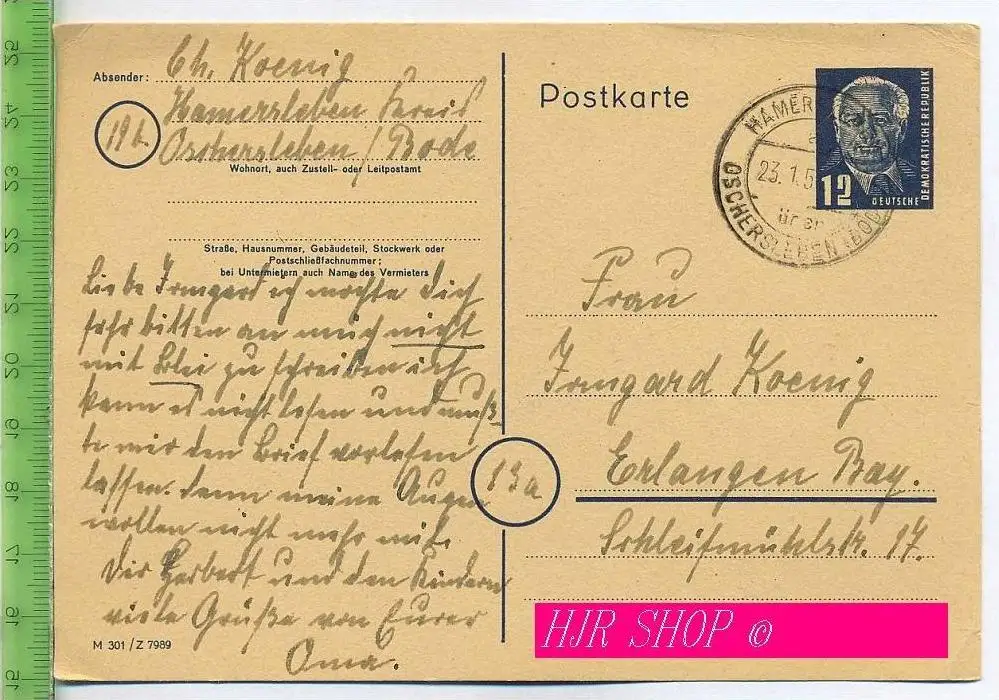 Absender: Ch. Koenig
19b
Hamersleben Kreis
Oschersleben / Bode
Wohnort, auch Zustell- oder Leitpostamt
Straße, Hausnummer, Gebäudeteil, Stockwerk oder
Postschließfachnummer;
bei Untermietern auch Name des Vermieters
Liebe Irmgard ich möchte Dich
sehr bitten an mich nicht
mit Blei zu schreiben ich
kann es nicht lesen und muß-
te mir den Brief vorlesen
lassen. denn meine Augen
wollen nicht mehr mit.
Dir Herbert und den Kindern
viele Grüße von Eurer
Oma.
M 301 / Z 7989
Postkarte
HAMER
23. 1. 5
über
OSCHERSLEBEN (BOD
12
DEUTSCHE
DEMOKRATISCHE REPUBLIK
Frau
Irmgard Koenig
13a
Erlangen Bay.
Schleifmühlstr. 17.
HJR SHOP ©
25
24
23
22
21
20
19
18
17
16
15